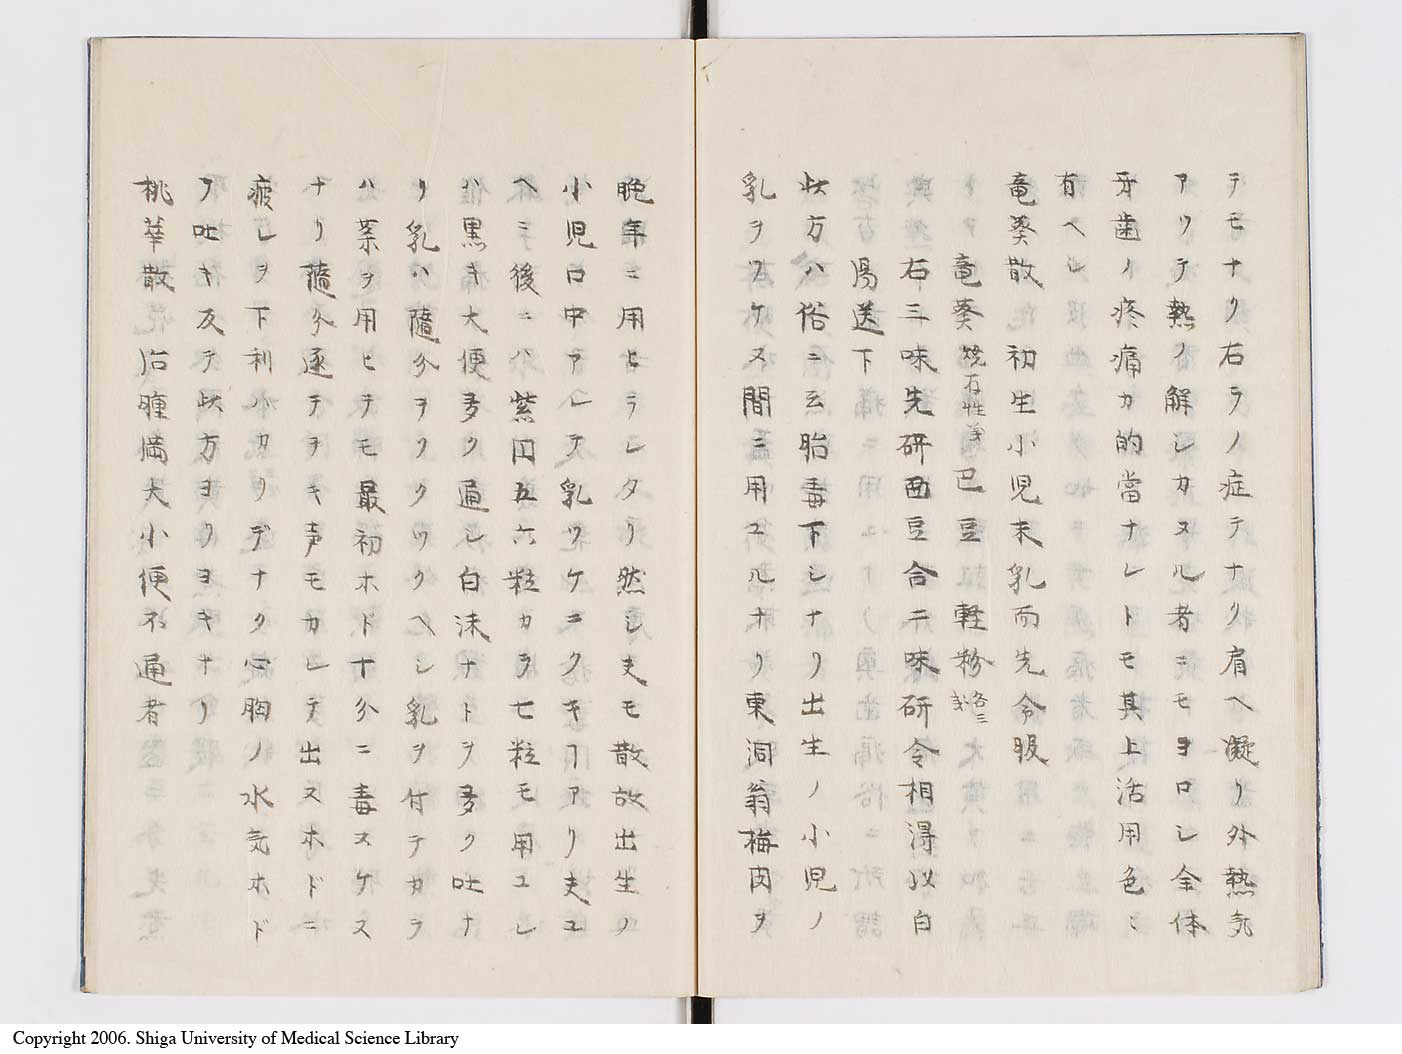 テモナク右ラノ症テナク肩ヘ凝リ外熱気
アツテ熱ノ解シカヌル者ニモヨロシ全体
牙歯ノ疼痛カ的當ナレトモ其上活用色ミ
有ヘシ
竜葵散 初生小児未乳而先令服
竜葵 焼存性 巴豆 軽粉 各三
右三味先研 豆合二味研令相淂以白
湯送下
此方ハ俗ニ云胎毒下シナリ出生ノ小児ノ
乳ヲツケヌ間ニ用ユルナリ東洞翁梅肉ヲ
晩年ニ用ヒラレタリ然シ夫モ散故出生ノ
小児口中アレテ乳ツケニクキヿアリ夫ユ
ヘニ後ニハ紫円五六粒カラ七粒モ用ユレ
ハ黒キ大便多ク通シ白沫ナトヲ多ク吐ナ
リ乳ハ随分ヲソクツクヘシ乳ヲ付テカラ
ハ薬ヲ用ヒテモ最初ホド十分ニ毒ヌケヌ
ナリ随分逐テヲキ声モカレテ出ヌホドニ
疲レヲ下利ハカリデナク心胸ノ水気ホド
ヲ吐キ反テ此方ヨクヨキナリ
桃華散 治腫満大小便不通者
Copyright 2006. Shiga University of Medical Science Library